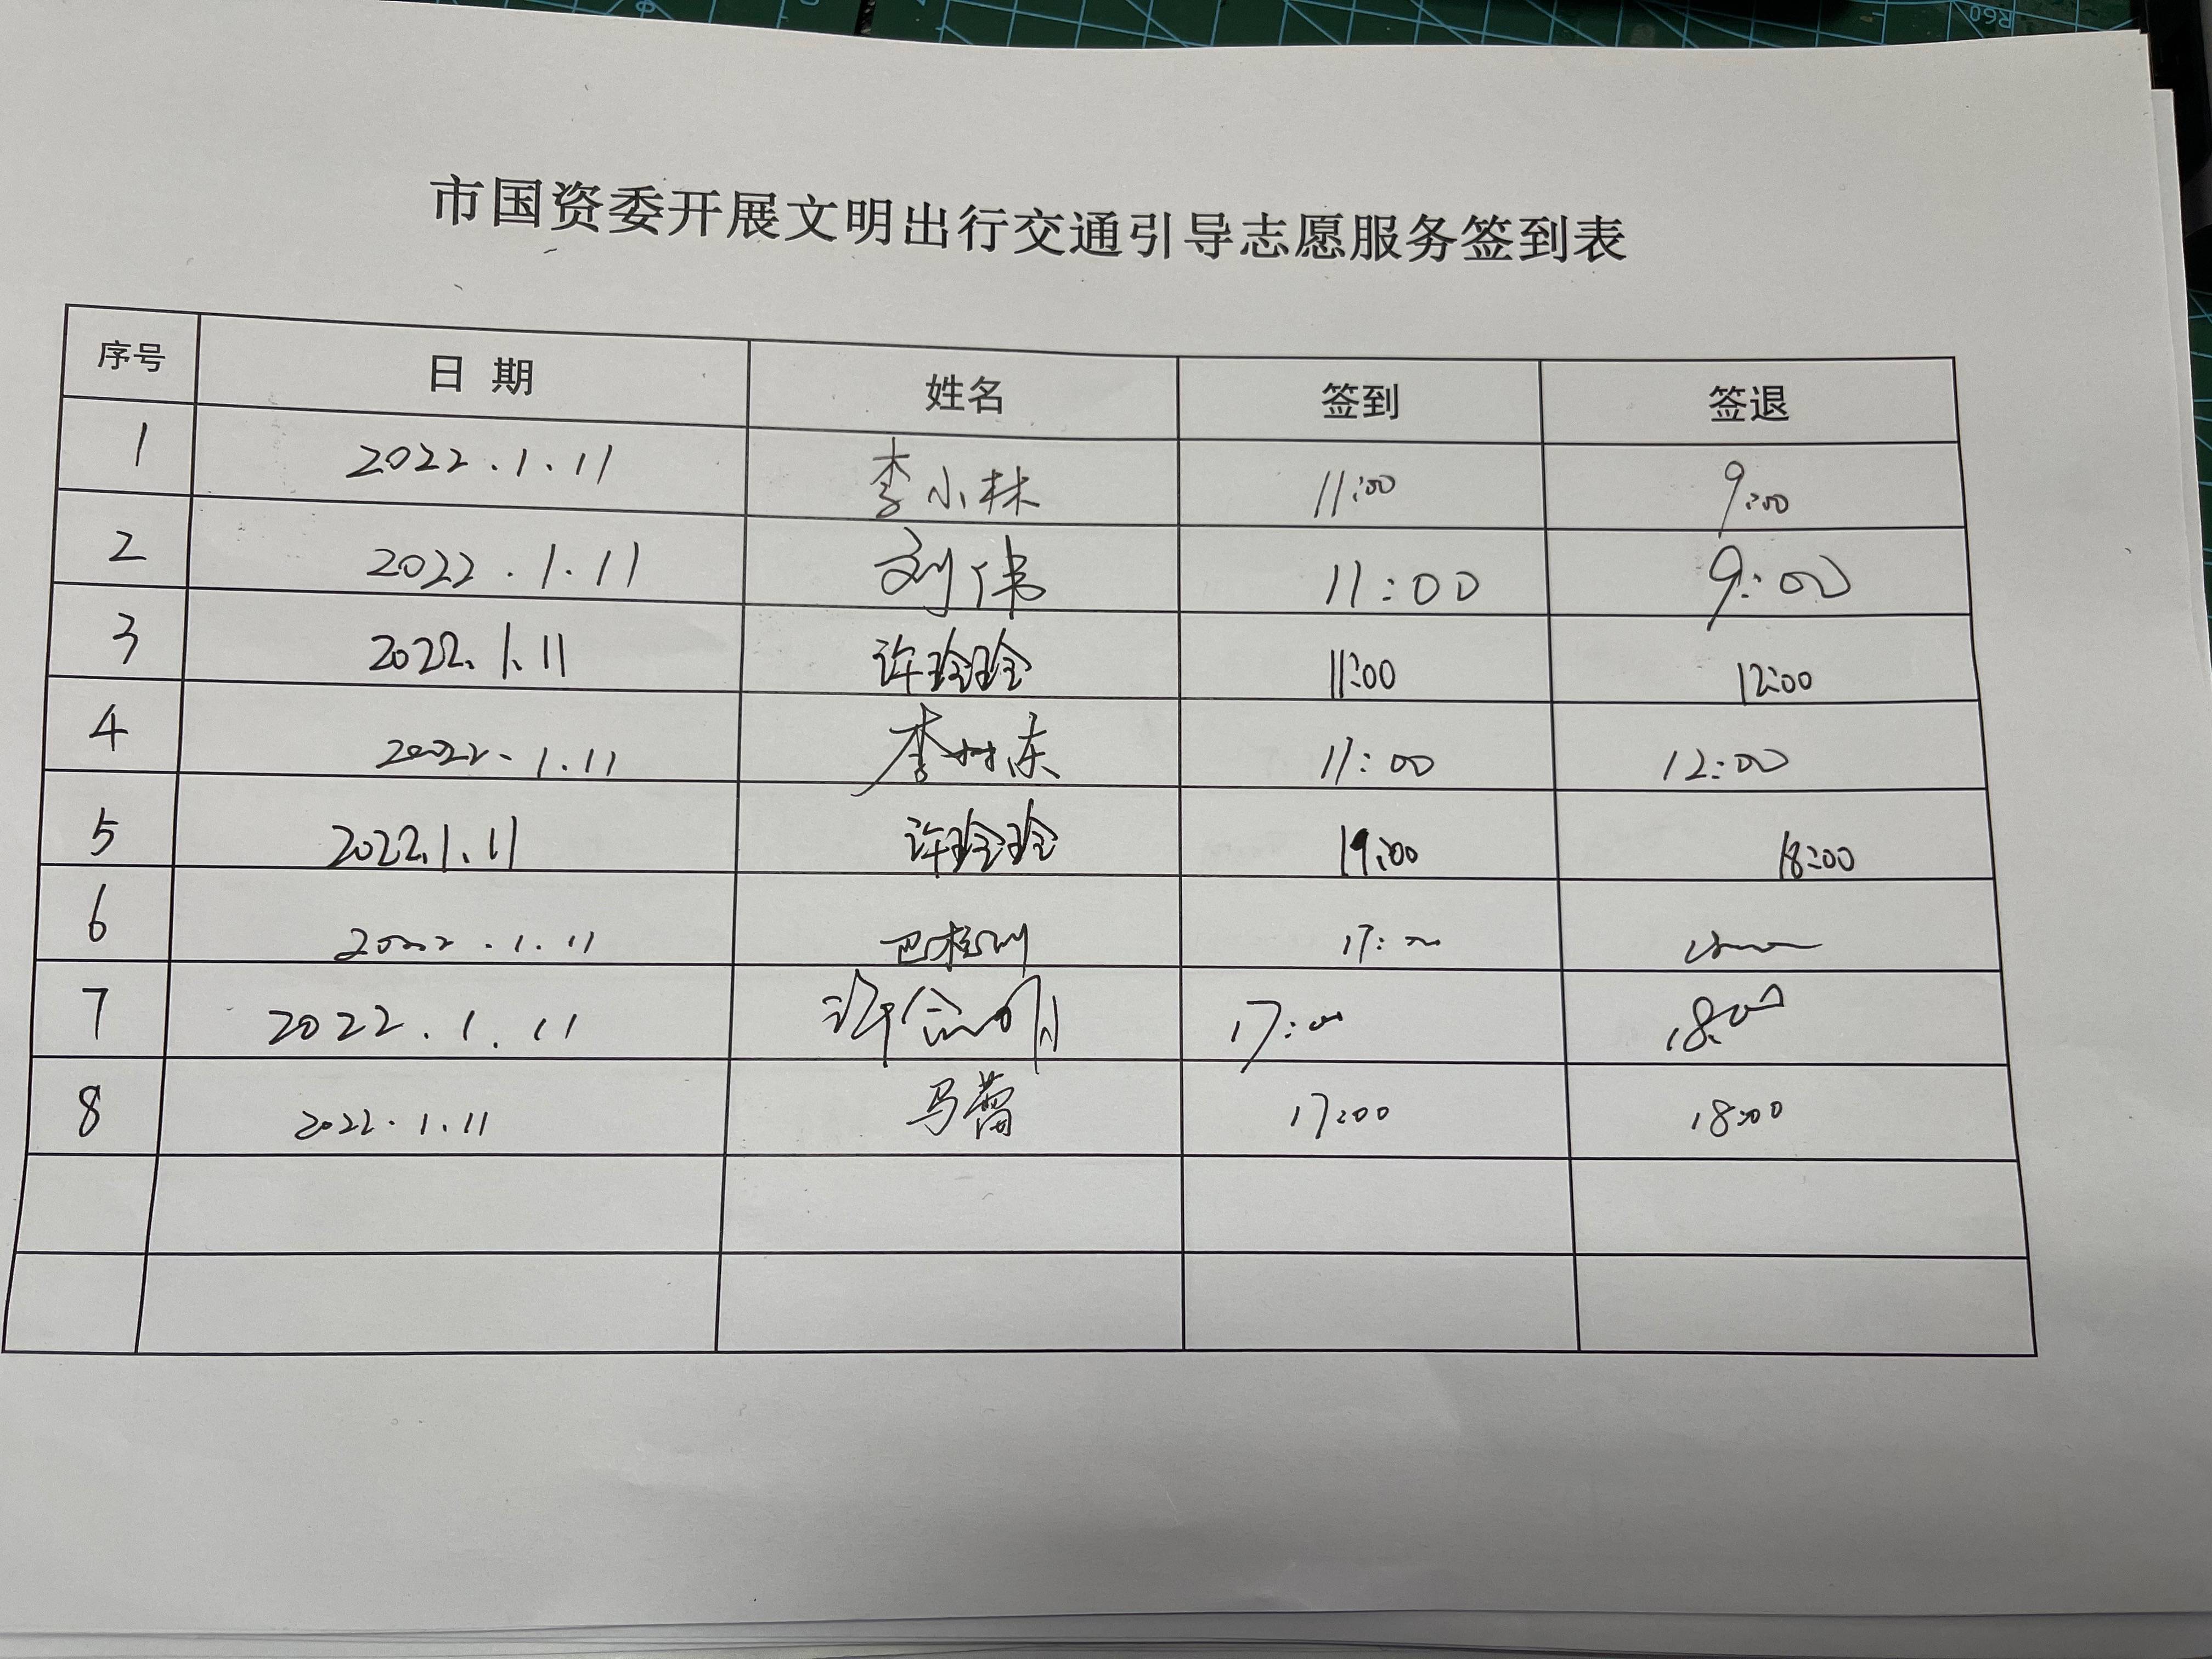 市国资委开展文明出行交通引导志愿服务签到表
序号 日期 姓名 签到 签退
1 2022.1.11 李小林 11:00 9:00
2 2022.1.11 刘伟 11:00 9:00
3 2022.1.11 许玲玲 11:00 12:00
4 2022.1.11 李树东 11:00 12:00
5 2022.1.11 许玲玲 19:00 18:00
6 2022.1.11 17:00
7 2022.1.11 17:00 18:00
8 2022.1.11 马蕾 17:00 18:00